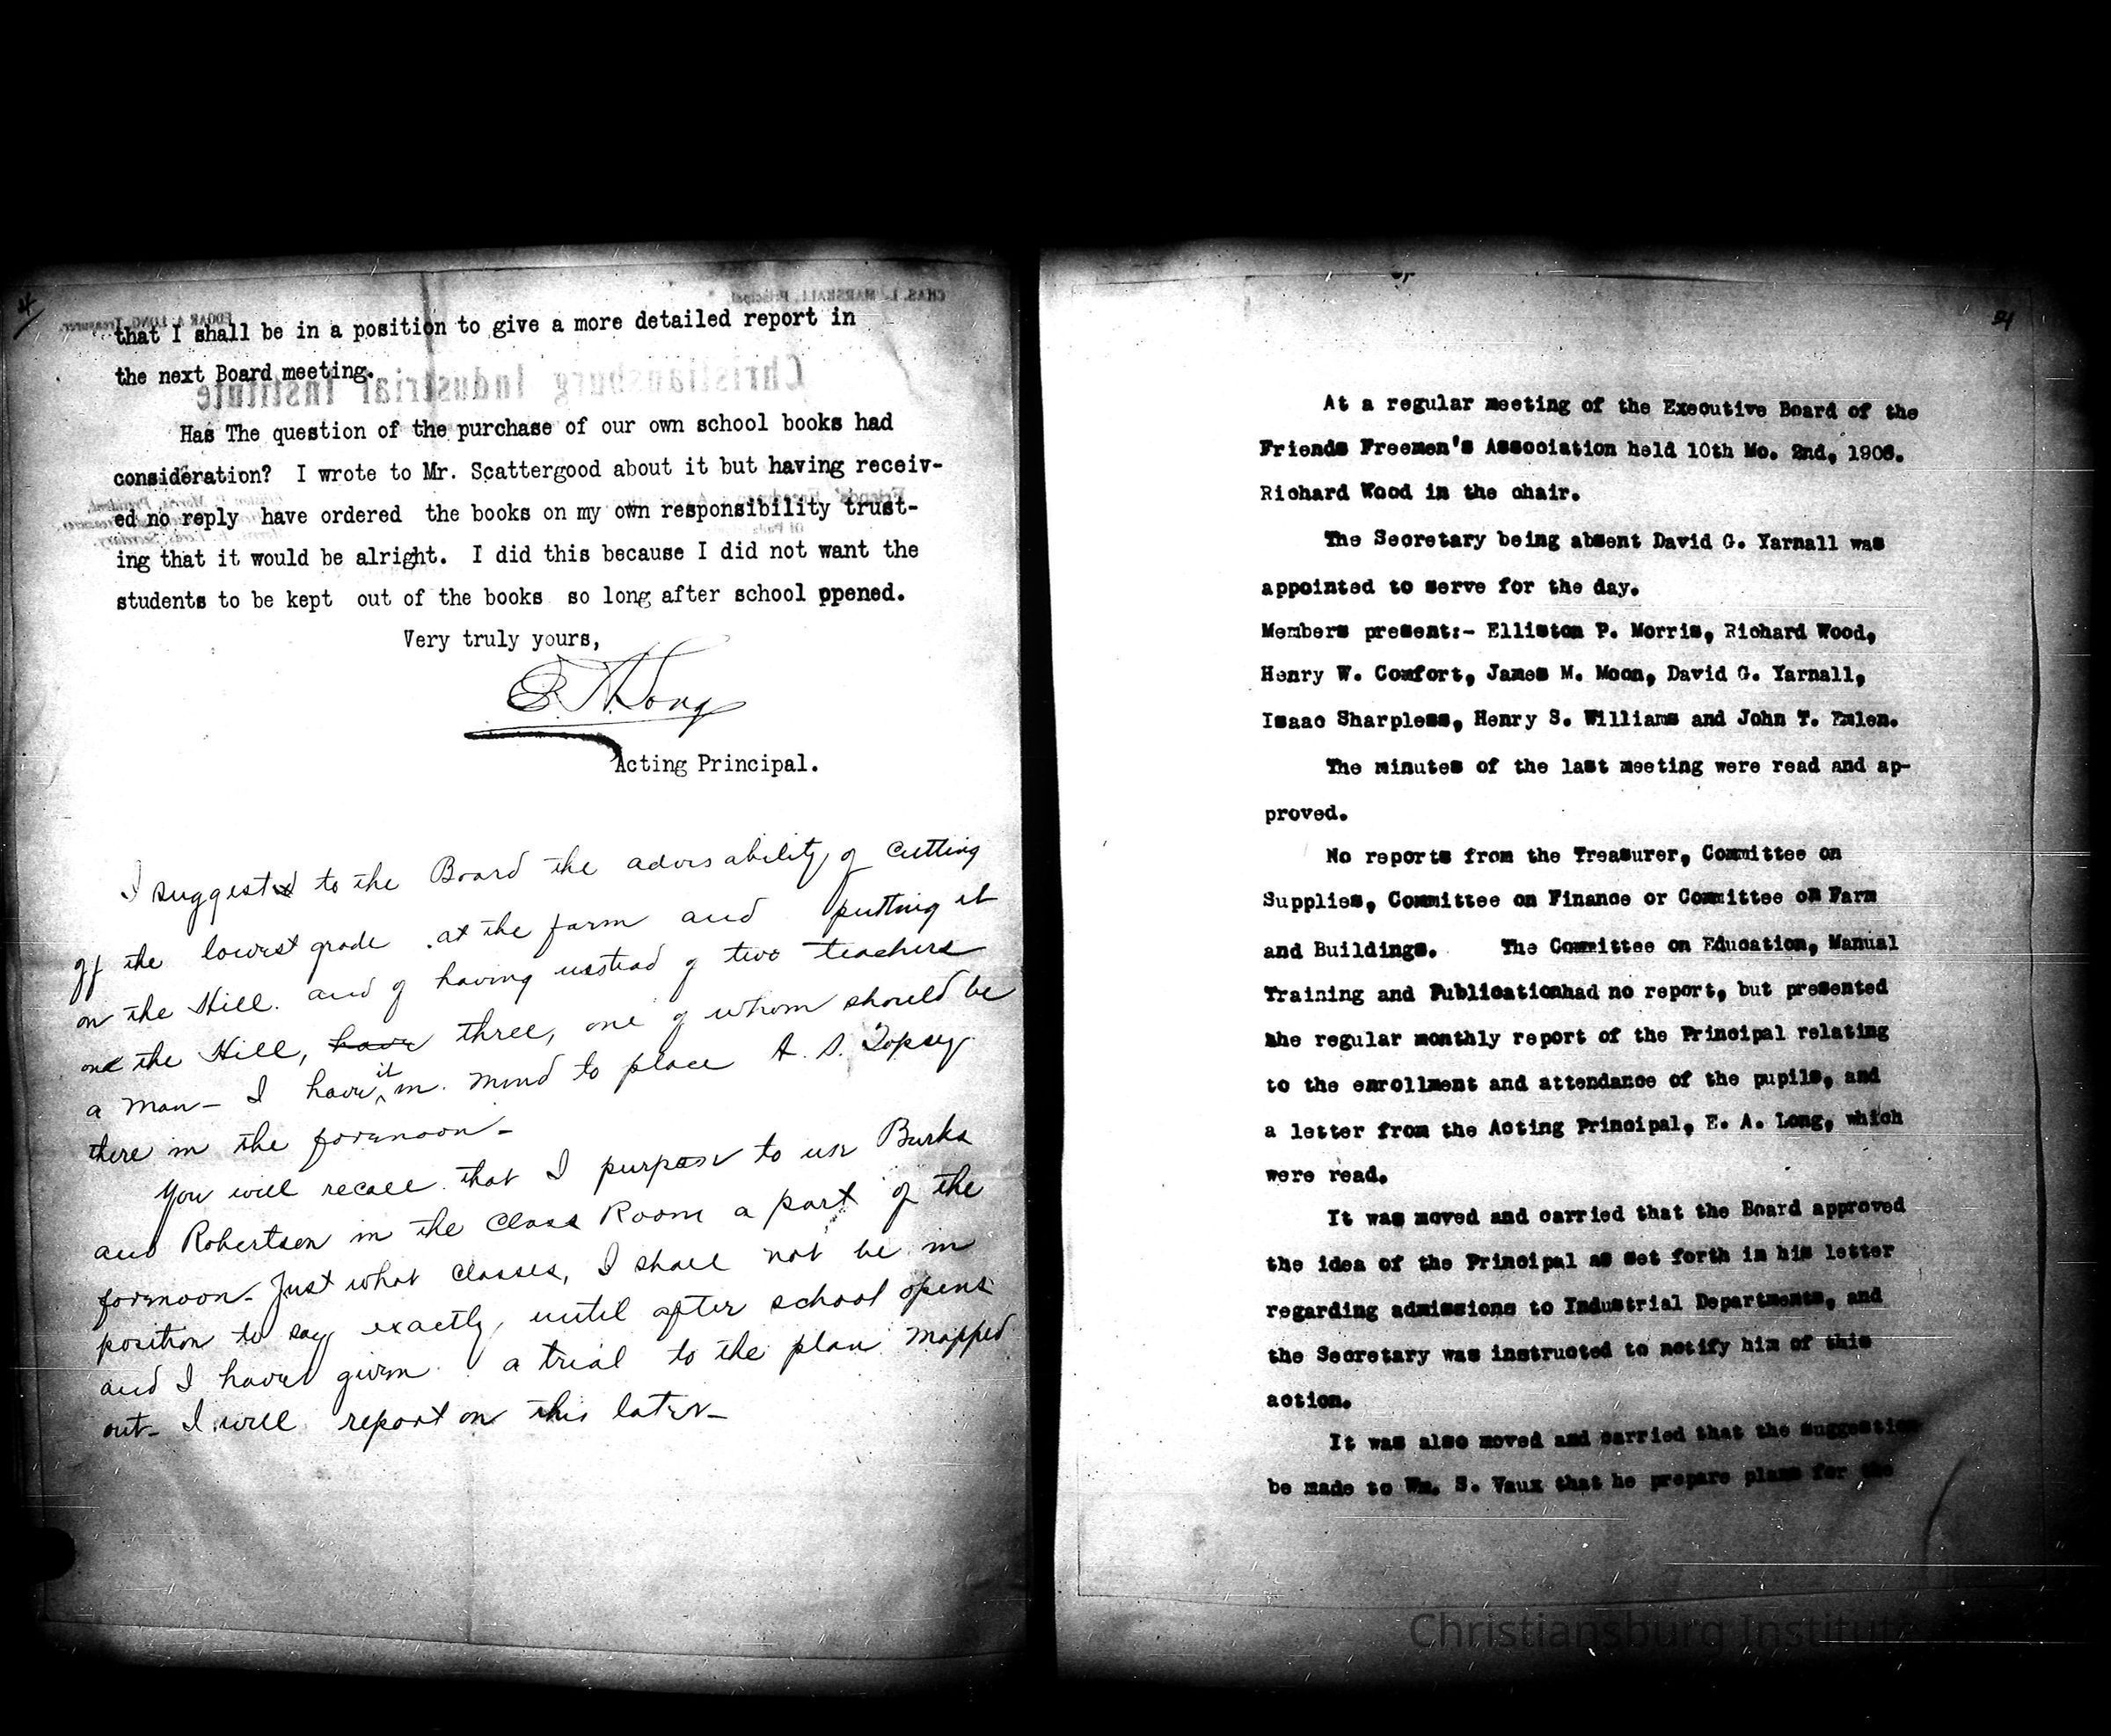 4/
that I shall be in a position to give a more detailed report in
the next Board meeting.
Has The question of the purchase of our own school books had
consideration? I wrote to Mr. Scattergood about it but having receiv-
ed no reply have ordered the books on my own responsibility trust-
ing that it would be alright. I did this because I did not want the
students to be kept out of the books so long after school opened.
Very truly yours,
E. A. Long
Acting Principal.
I suggested to the Board the advisability of cutting
off the lowest grade at the farm and putting it
on the Hill. and of having instead of two teachers
on the Hill, have three, one of whom should be
a man— I have it in mind to place A. S. Topsy
there in the forenoon—
You will recall that I purpose to use Burks
and Robertson in the Class Room a part of the
forenoon— Just what classes, I shall not be in
position to say exactly, until after school opens
and I have given a trial to the plan mapped
out— I will report on this later—
At a regular meeting of the Executive Board of the
Friends Freemen's Association held 10th Mo. 2nd, 1906.
Richard Wood in the chair.
The Secretary being absent David G. Yarnall was
appointed to serve for the day.
Members present:- Elliston P. Morris, Richard Wood,
Henry W. Comfort, James M. Moon, David G. Yarnall,
Isaac Sharpless, Henry S. Williams and John T. Emlen.
The minutes of the last meeting were read and ap-
proved.
No reports from the Treasurer, Committee on
Supplies, Committee on Finance or Committee on Farm
and Buildings. The Committee on Education, Manual
Training and Publicationhad no report, but presented
the regular monthly report of the Principal relating
to the enrollment and attendance of the pupils, and
a letter from the Acting Principal, E. A. Long, which
were read.
It was moved and carried that the Board approved
the idea of the Principal as set forth in his letter
regarding admissions to Industrial Departments, and
the Secretary was instructed to notify him of this
action.
It was also moved and carried that the suggestion
be made to Wm. S. Vaux that he prepare plans for the
Christiansburg Institute